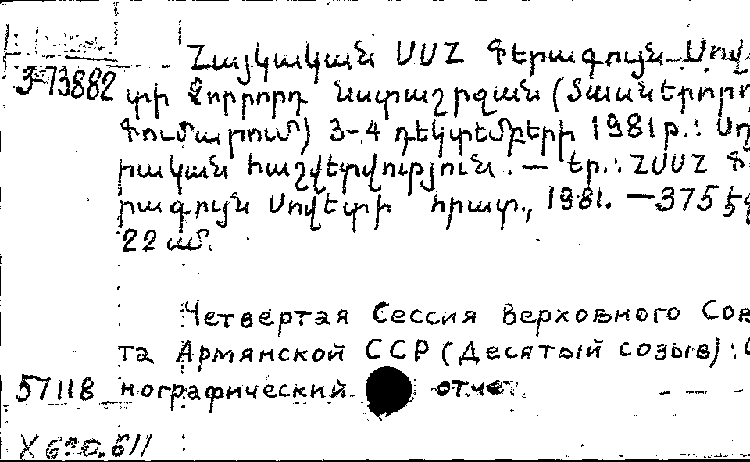 Հայկական ՍՍՀ Գերագույն Սով
3-73882 տի Չորրորդ նստաշրջան (Տասներորդ
Գումարում) 3-4 դեկտեմբերի 1981թ.: Սղ
րական հաշվետվություն. — Եր.: ՀՍՍՀ Գ
րագույն Սովետի հրատ., 1981. — 375 էջ
22 սմ.
Четвертая Сессия Верховного Сов
та Армянской ССР (Десятый созыв): С
57118 нографический отчет.